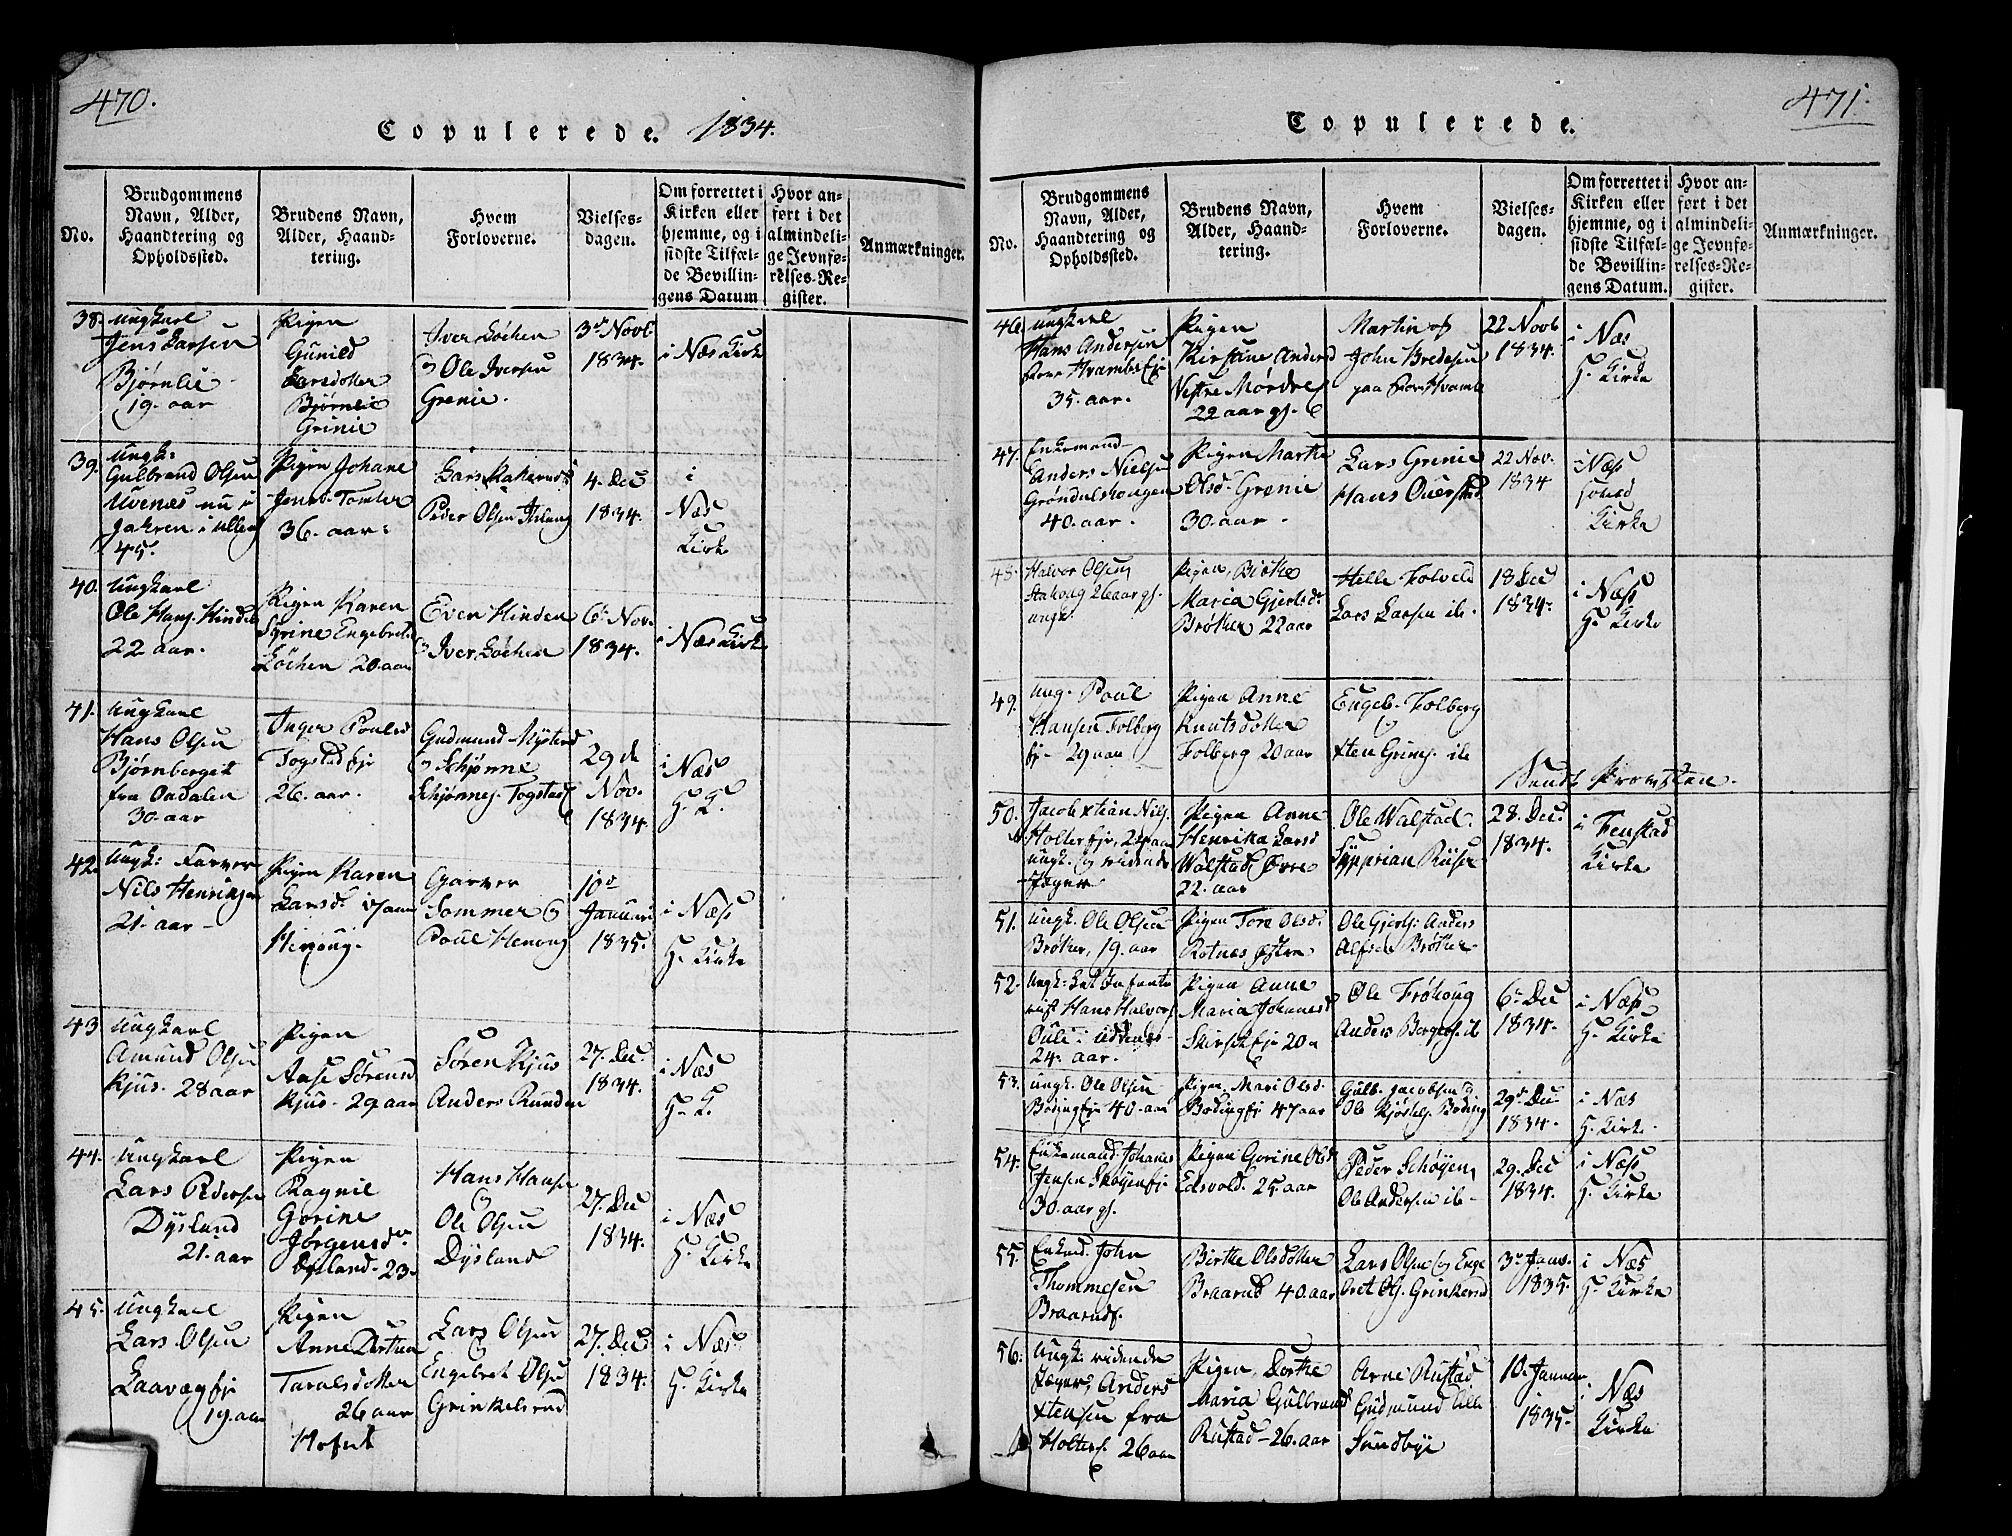 470.
Copulerede. 1834.
No.
Brudgommens
Navn, Alder,
Haandtering og
Opholdssted.
Brudens Navn,
Alder, Haand-
tering.
Hvem
Forloverne.
Vielses-
dagen.
Om forrettet i
Kirken eller
hjemme, og i
sidste Tilfæl-
de Bevillin-
gens Datum
Hvor an-
ført i det
almindeli-
ge Jevnfø-
relses-Re-
gister.
Anmærkninger.
38.
Ungkarl
Jens Larsen
Bjørnlie
19. aar
Pigen
Gunild
Larsdotter
Bjørnlie
Grinie
Iver Løchen
Ole Iversen
Grenie.
3de Novb
1834.
i Næs Kirke
39.
Ungk:
Gulbrand Olsen
Uvenæs nu i
45.
Pigen Johane
Jensd. Tomter
36. aar.
Lars
Peder Olsen
4. Dec
1834.
i
Næs
Kirke
40.
Ungkarl
Ole Hansf. Hinden
22 aar.
Pigen Karen
Syrine Engebretsd
Løchen 20 aar
Even Hinden
Iver Løchen
6. Nov.
1834.
i Næs Kirke
41.
Ungkarl
Hans Olsen
Bjørnberget
fra Oudalen
30. aar
Inger Poulsd
Togstad Eje
26. aar.
Gudmund Mystad
Schjønne
Schjønnes. Togstad
29 de
Nov.
1834
i Næs
H. K.
42.
Ungk: Farver
Nils Henriksen
21. aar
Pigen Karen
Larsd. 17 aar
Henoug.
Garver
Sommer
Poul Henoug
10de
Januari
1835.
i Næs
H. Kirke
43
Ungkarl
Amund Olsen
Kjus. 28 aar
Pigen
Aase Sørensd
Kjus. 29 aar
Søren Kjus
Anders Runden
27. Dec.
1834.
i Næs
H. K.
44.
Ungkarl
Lars Pedersen
Dysland
21. aar
Pigen
Ragnil
Gorine
Jørgensdr
Dysland. 23
Hans Hansen
Ole Olsen
Dysland
27. Dec
1834.
i Næs
H. Kirke
45.
Ungkarl
Lars Olsen
Laavæg Eje
19. aar
Pigen
Anne Dorthea
Taralsdotter
26 aar
Hofset
Lars Olsen
Engebret Olsen
Grinkelsrud
27. Dec
1834.
i Næs
H. Kirke
471.
Copulerede.
No.
Brudgommens
Navn, Alder,
Haandtering og
Opholdssted.
Brudens Navn,
Alder, Haand-
tering.
Hvem
Forloverne.
Vielses-
dagen.
Om forrettet i
Kirken eller
hjemme, og i
sidste Tilfæl-
de Bevillin-
gens Datum.
Hvor an-
ført i det
almindeli-
ge Jevnfø-
relses-Re-
gister.
Anmærkninger.
46.
Ungkarl
Hans Andersen
Store Hvambs Eje
35. aar.
Pigen
Kirstine Andersd
Vestre Mørdre
22 aar gl.
Martin og
John Bredesen
paa Store Hvamb
22 Novb
1834.
i Næs
H. Kirke
47.
Enkemand
Anders Nielsen
Grøndalshougen
40. aar.
Pigen Marthe
Olsd. Grenie
30. aar.
Lars Grenie
Hans Querstad
22 Nov.
1834
i Næs
Kirke
48.
Halvor Olsen
Hakoug 26 aar gl.
ungk.
Pigen, Birthe
Maria Gjertsdr
Brøther 22 aar
Helle Folveld
Lars Larsen ib.
18 Dec
1834.
i Næs
H. Kirke
49.
Ung. Poul
Hansen Folberg
Ej. 29 aar
Pigen Anne
Knutsdotter
Folberg 20 aar
Engeb. Folberg
Sten Grims. ib
Sendt Provsten.
50.
Jacob Xtian Nils.
Holter Eje, 24 aar
ungk. og ridende
Jæger
Pigen Anne
Henrika Larsd
Walstad Øvre
22. aar
Ole Walstad.
Sypprian Riise
28. Dec.
1834.
i Fenstad
Kirke
51.
Ungk. Ole Olsen
Brøther, 19. aar
Pigen Tore Olsd.
Rotnes Østre
Ole Gjerts. Anders
Alfsen Brøther
52.
Ungk: Let Infante
rist Hans Halvors.
24. aar.
Pigen Anne
Maria Johannesd
20 a
Ole Frøhoug
Anders Borgers. ib
6. Dec
1834.
i Næs
H. Kirke
53.
Ungk. Ole Olsen
Boding Ej 40. aar
Pigen, Mari Olsd.
Boding Ej 47 aar
Gulb. Jacobsen
Ole Boding
29. Dec
1834.
i Næs
H. Kirke.
54.
Enkemand Johanes
Jensen Skøyen Ej
30. aar gl.
Pigen Gorine Olsd
Eidsvold. 25. aar
Peder Schøyen,
Ole Andersen ib.
29. Dec
1834.
i Næs
H. Kirke
55.
Enkmd. John
Thommesen
Braarud.
Birthe Olsdotter
Braarud 40. aar
Lars Olsen og Enge
bret Ols. Grinkerud
3. Janr.
1835.
i Næs
H. Kirke
56.
Ungk: ridende
Jæger, Anders
Xtensen fra
Holters. 26 aar
Pigen, Dorthe
Maria Gulbransd
Rustad. 26. aar
Arne Rustad
Gudmund Lille
Sundbye
10. Januar
1835.
i Næs
Kirke